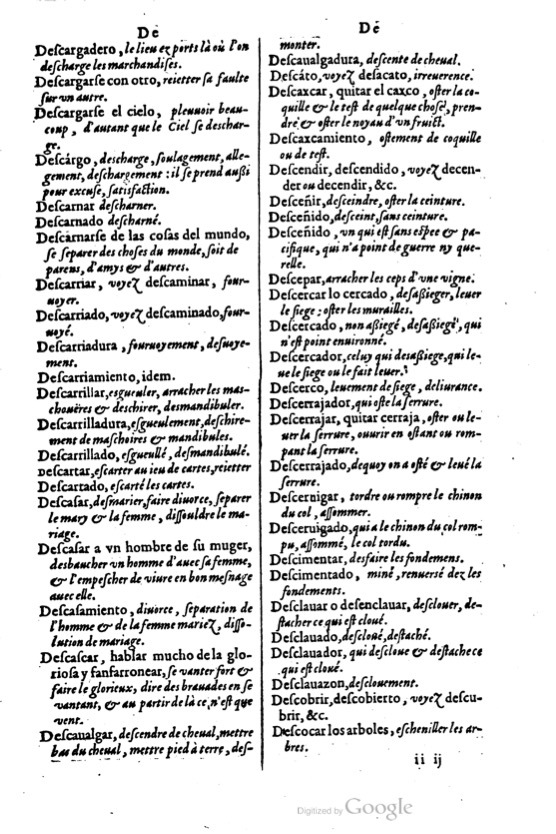 De
Descargadero, le lieu & ports là où l'on
descharge les marchandises.
Descargarse con otro, reietter sa faulte
sur vn autre.
Descargarse el cielo, pleuuoir beau-
coup, d'autant que le Ciel se deschar-
ge.
Descárgo, descharge, soulagement, alle-
gement, deschargement : il se prend aussi
pour excuse, satisfaction.
Descarnar descharner.
Descarnado descharné.
Descarnarse de las cosas del mundo,
se separer des choses du monde, soit de
parens, d'amys & d'autres.
Descarriar, voyez descaminar, four-
uoyer.
Descarriado, voyez descaminado, four-
uoyé.
Descarriadura, fouruoyement, desuoye-
ment.
Descarriamiento, idem.
Descarrillar, esgueuler, arracher les mas-
chouëres & deschirer, desmandibuler.
Descarrilladura, esgueulement, deschire-
ment de maschoires & mandibules.
Descarrillado, esgueullé, desmandibulé.
descartar, escarter au ieu de cartes, reietter
Descartado, escarté les cartes.
Descasar, desmarier, faire diuorce, separer
le mary & la femme, dissouldre le ma-
riage.
Descasar a vn hombre de su muger,
desbaucher vn homme d'auec sa femme,
& l'empescher de viure en bon mesnage
auec elle.
Descasamiento, diuorce, separation de
l'homme & de la femme mariez, disso-
lution de mariage.
Descascar, hablar mucho de la glo-
riosa y fanfarronear, se vanter fort &
faire le glorieux, dire des brauades en se
vantant, & au partir de là ce n'est que
vent.
Descaualgar, descendre de cheual, mettre
bas du cheual, mettre pied à terre, des-
Dé
monter.
Descaualgadura, descente de cheual.
Descáto, voyez desacato, irreuerence.
Descaxcar, quitar el caxco, oster la co-
quille & le test de quelque chose, pren-
dre & oster le noyau d'vn fruict.
Descaxcamiento, ostement de coquille
ou de test.
Descendir, descendido, voyez decen-
der ou decendir, &c.
Desceñir, desceindre, oster la ceinture.
Desceñido, desceint, sans ceinture.
Desceñido, vn qui est sans espee & pa-
cifique, qui n'a point de guerre ny que-
relle.
Descepar, arracher les ceps d'vne vigne.
Descercar lo cercado, desassieger, leuer
le siege : oster les murailles.
Descercado, non assiegé, desassiegé, qui
n'est point enuironné.
Descercador, celuy qui desassiege, qui le-
ue le siege ou le fait leuer.
Descerco, leuement de siege, deliurance.
Descerrajador, qui oste la serrure.
Descerrajar, quitar cerraja, oster ou le-
uer la serrure, ouurir en ostant ou rom-
pant la serrure.
Descerrajado, dequoy on a osté & leué la
serrure.
Descernigar, tordre ou rompre le chinon
du col, assommer.
Desceruigado, qui a le chinon du col rom-
pu, assommé, le col tordu.
Descimentar, desfaire les fondemens.
Descimentado, miné, renuersé dez les
fondements.
Desclauar o desenclauar, desclouer, de-
stacher ce qui est cloué.
Desclauado, descloué, destaché.
Desclauador, qui descloue & destache ce
qui est cloué.
Desclauazon, desclouement.
Descobrir, descobierto, voyez descu-
brir, &c.
Descocar los arboles, escheniller les ar-
bres.
ii ij
Digitized by Google